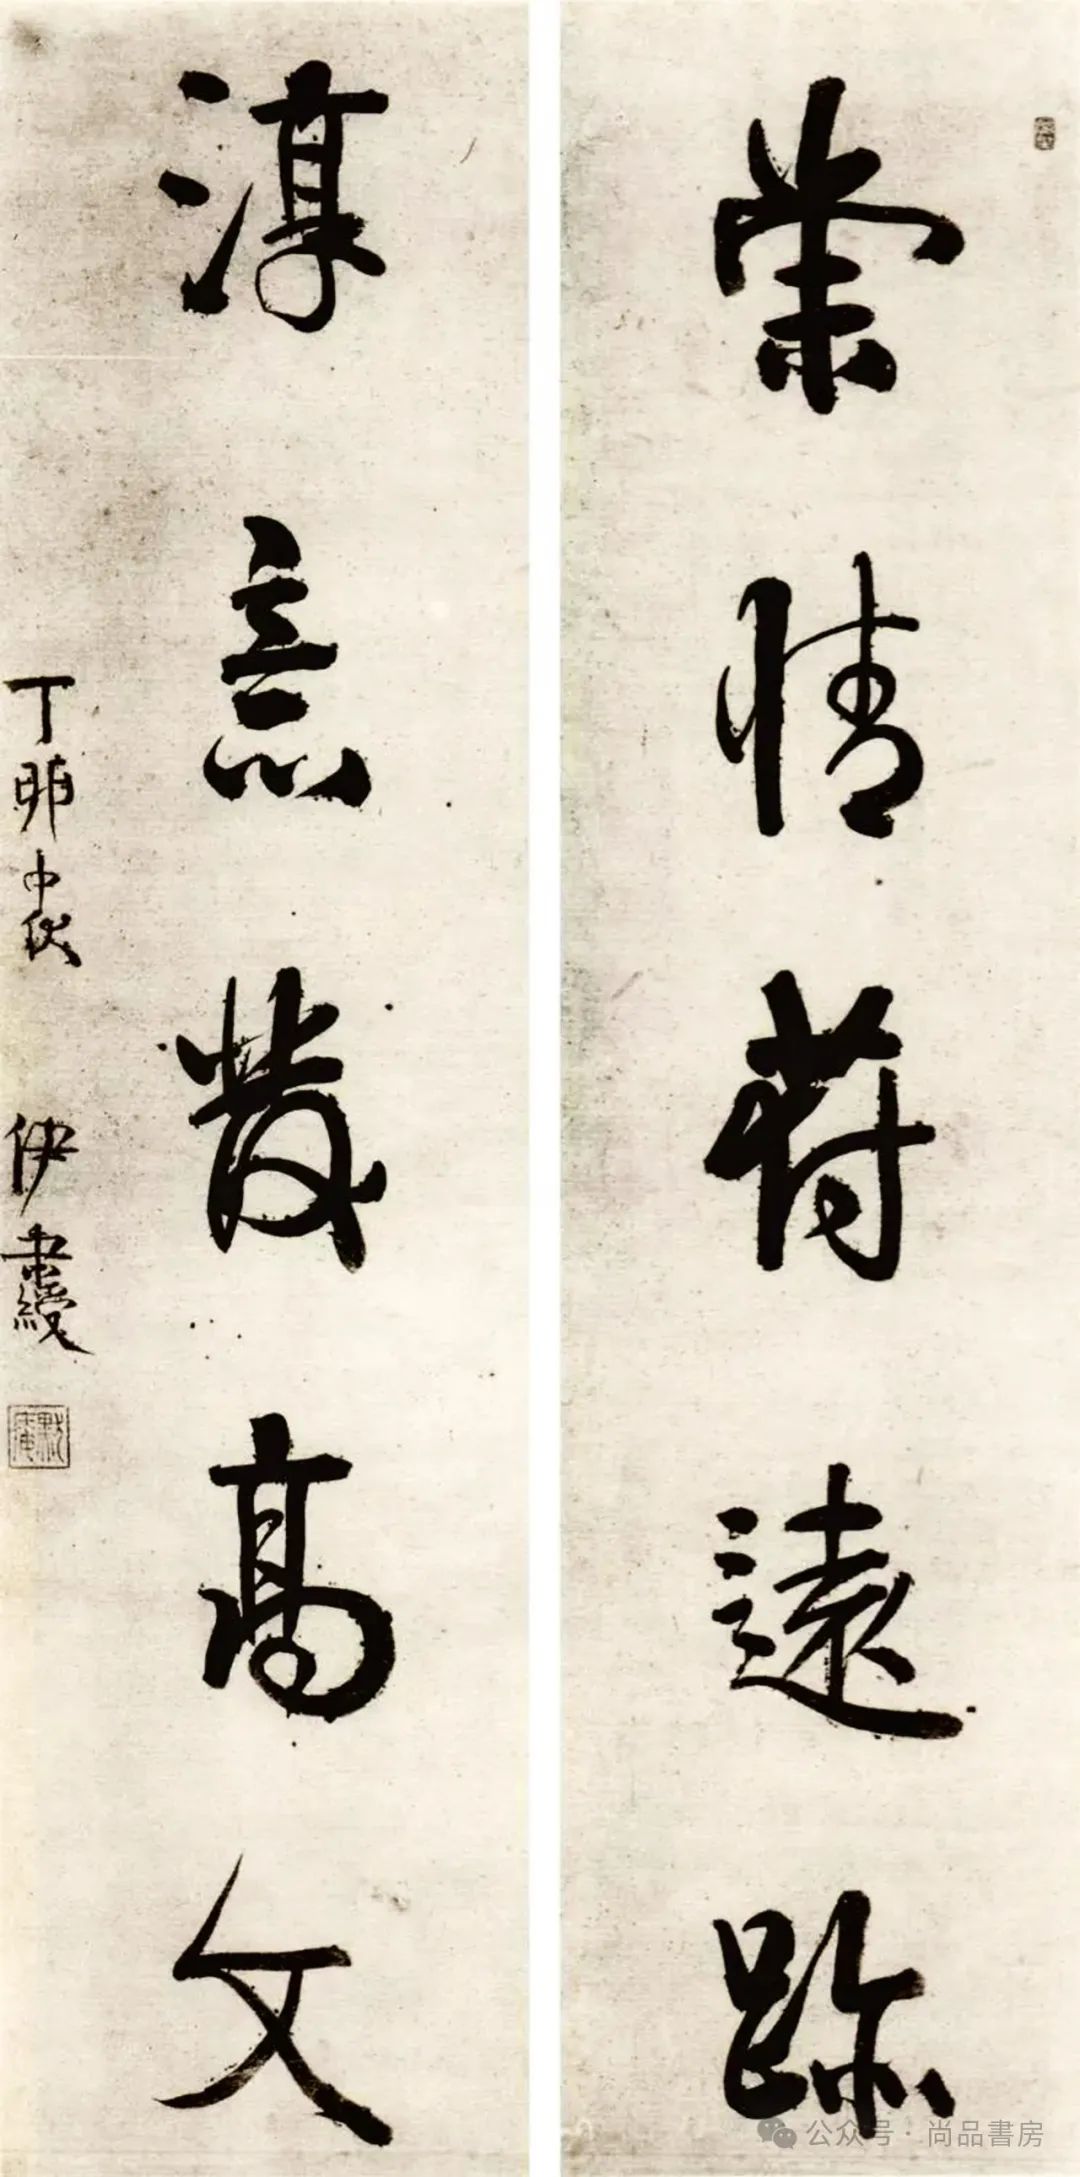 崇情符遠跡
淳意發高文
丁卯中伏 伊秉綬
默庵
公众号 · 尚品書房